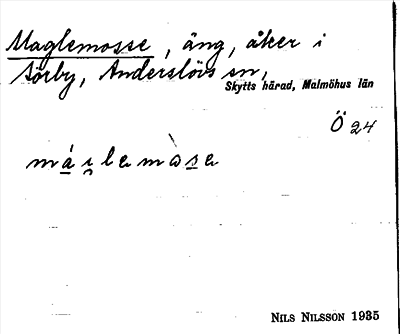 Maglemosse, äng, åker i
Sörby, Anderslövs sn,
Skytts härad, Malmöhus län
Ö 24
NILS NILSSON 1935